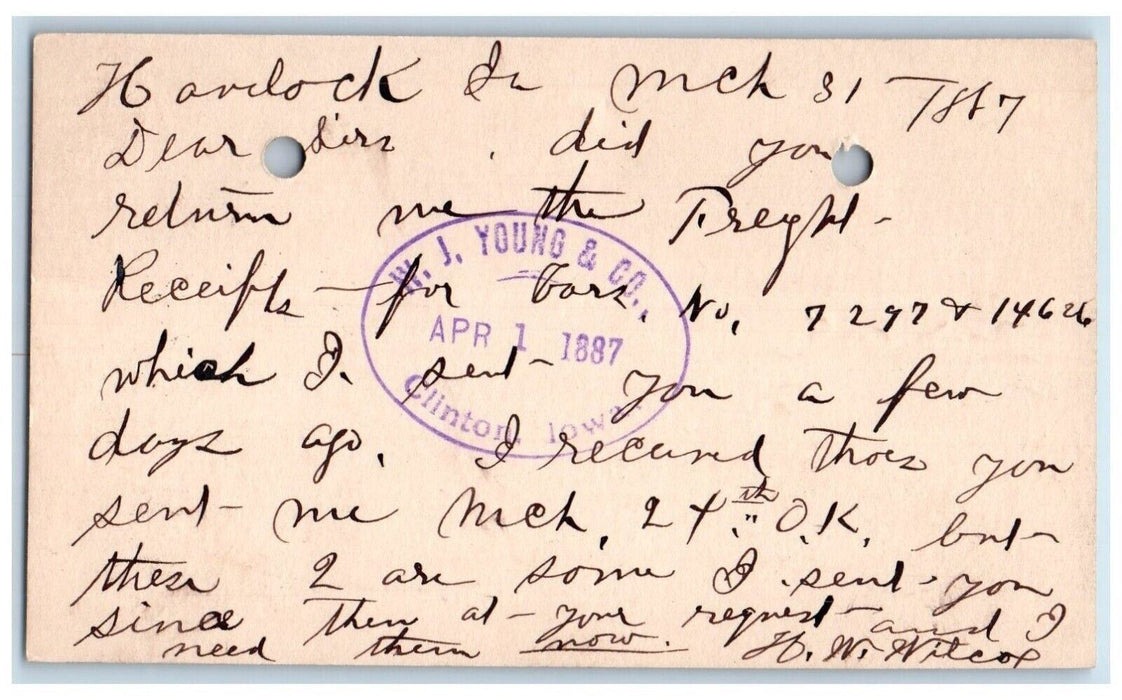 Havelock Ia Mch 31 - 1887
Dear Sirs. did you
return me the Freght -
Receipts - for Cars, No, 7297 & 14626
W. J. YOUNG & CO.,
APR 1 1887
Clinton, Iowa.
which I. sent - you a few
days ago. I receved thoes you
sent - me Mch, 24th O.K. but -
these 2 are some I sent - you
since then at - your request - and I
need them now. H. W. Wilcox